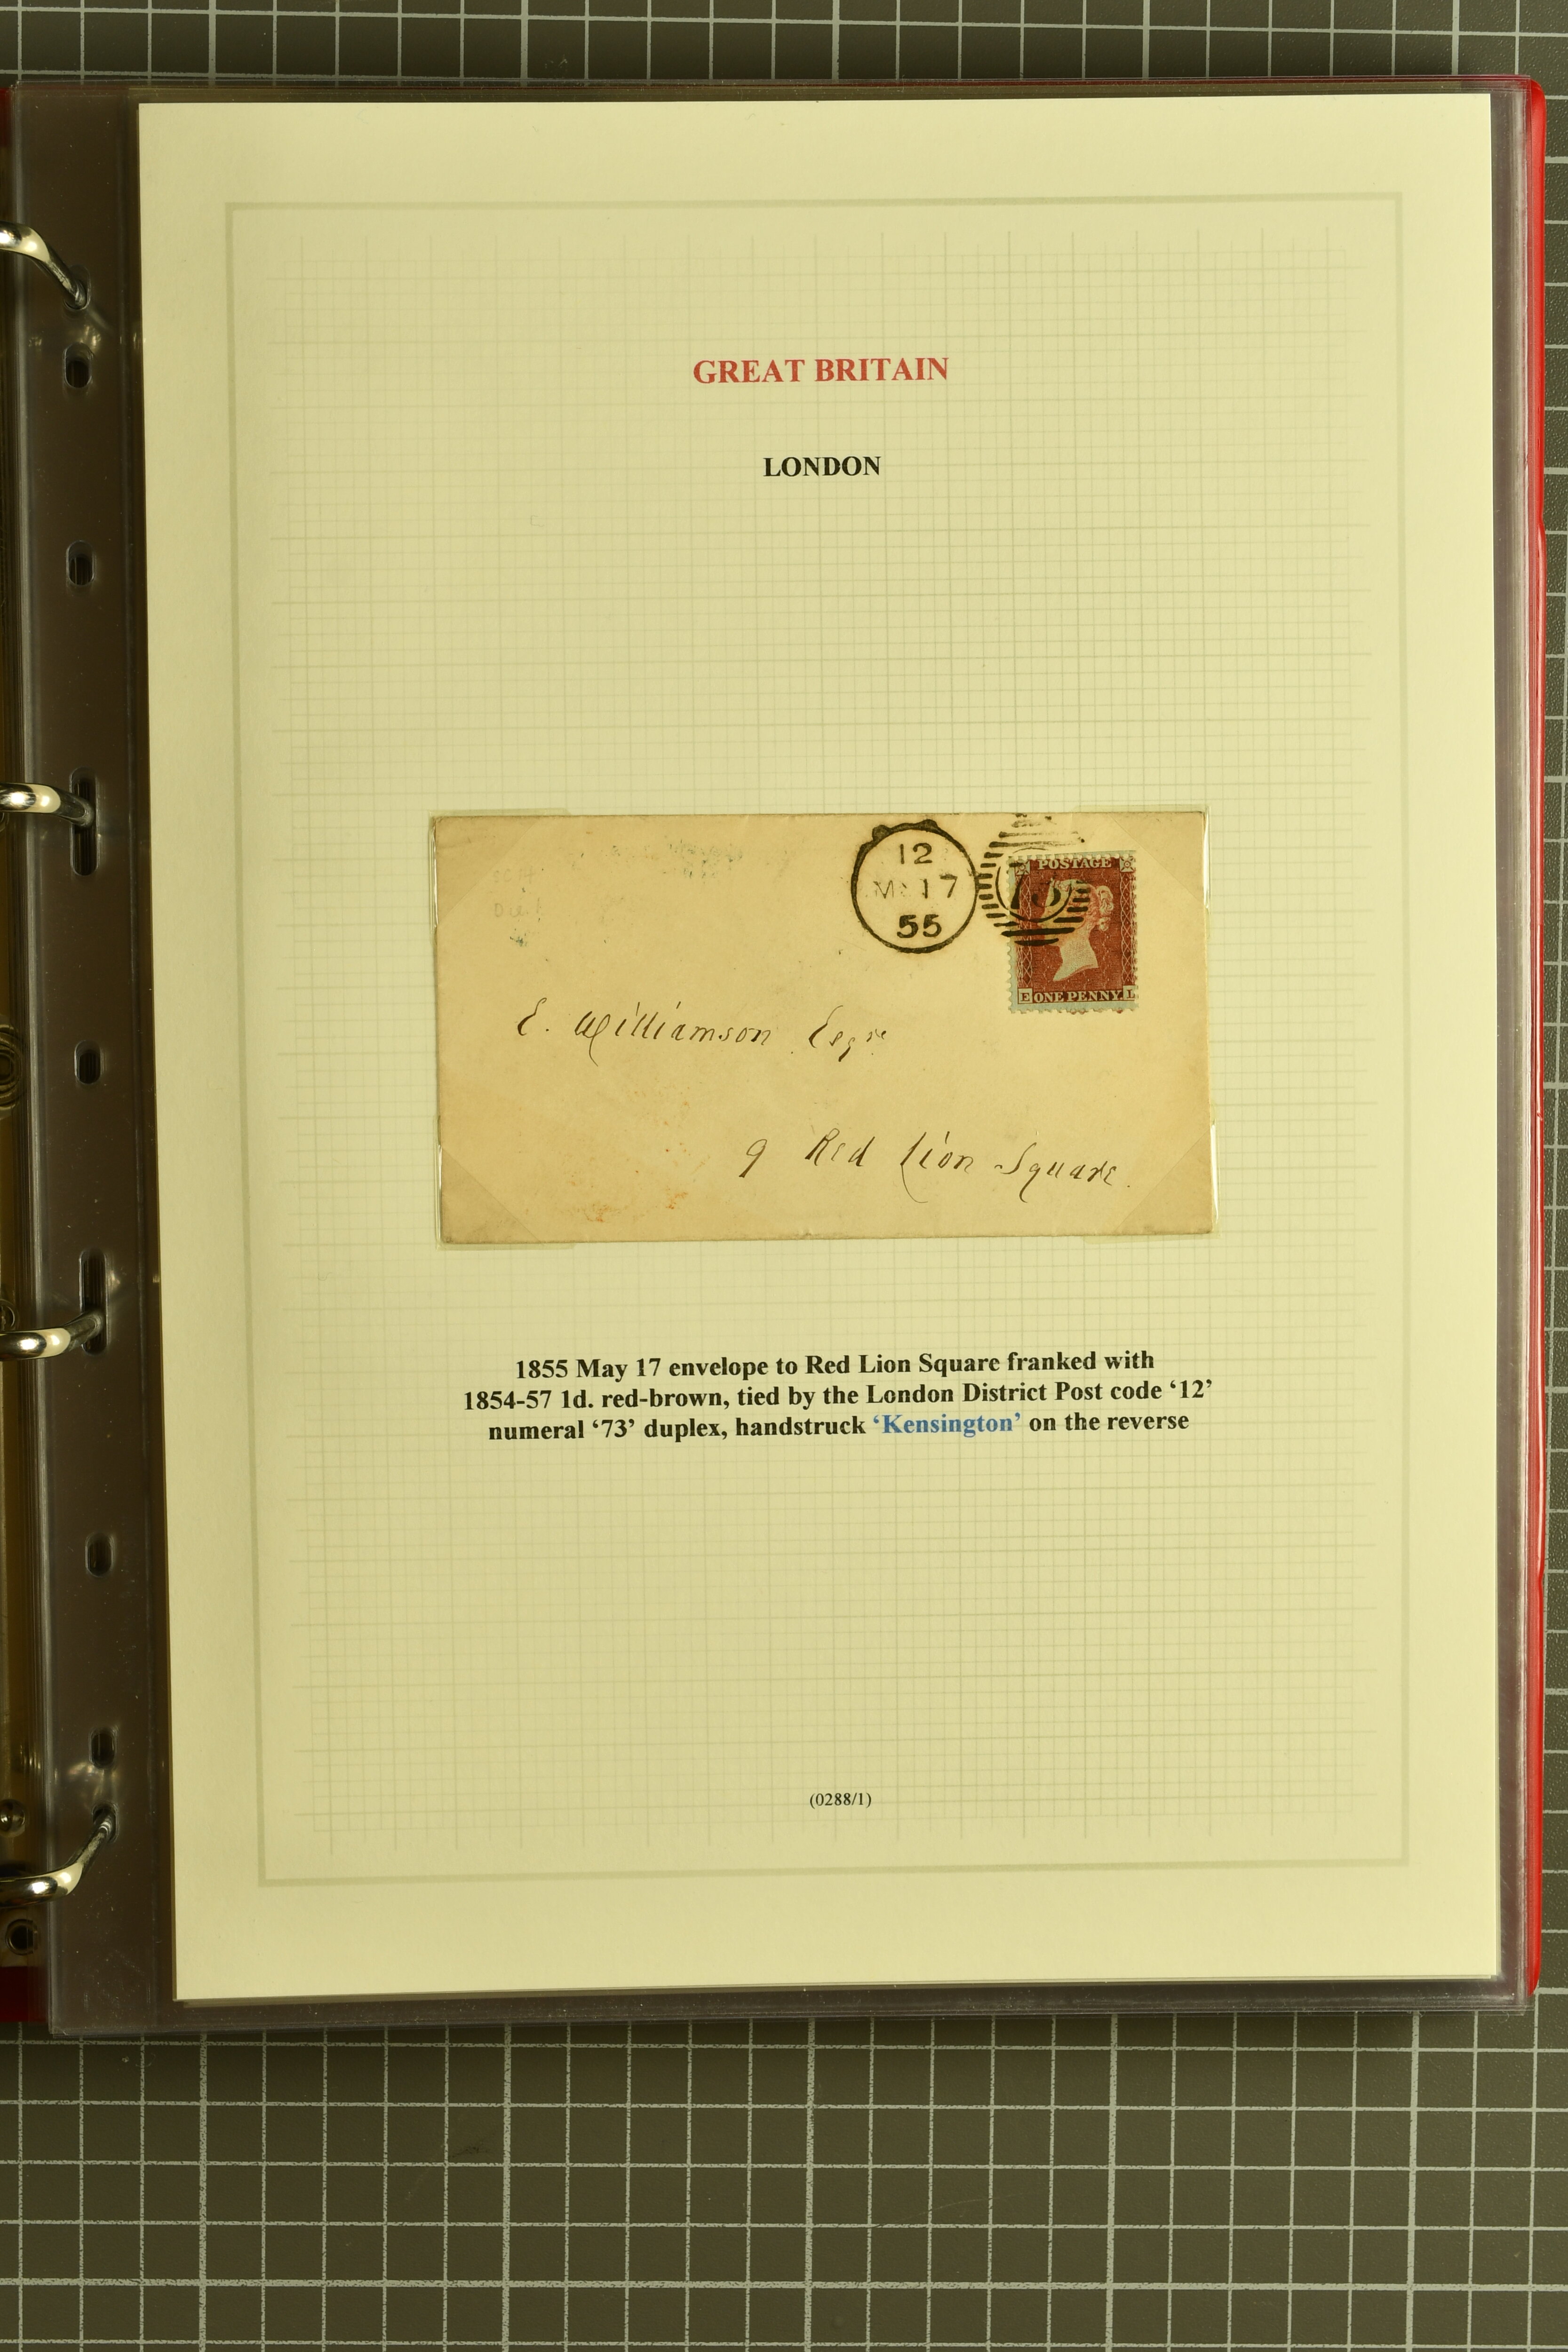 GREAT BRITAIN
LONDON
12
17
55
73
POSTAGE
E ONE PENNY L
E. Williamson Esqre
9 Red Lion Square.
1855 May 17 envelope to Red Lion Square franked with
1854-57 1d. red-brown, tied by the London District Post code ‘12’
numeral ‘73’ duplex, handstruck ‘Kensington’ on the reverse
(0288/1)